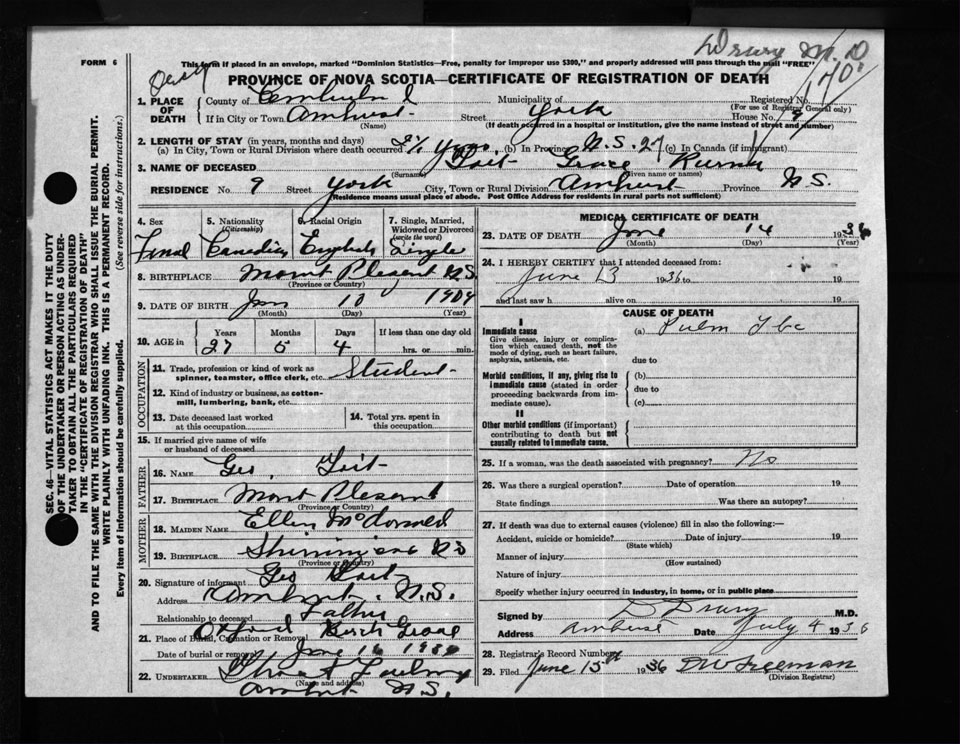 Drury M.D
FORM 6
This form if placed in an envelope, marked "Dominion Statistics—Free, penalty for improper use $300," and properly addressed will pass through the mail "FREE"
PROVINCE OF NOVA SCOTIA—CERTIFICATE OF REGISTRATION OF DEATH
1. PLACE OF DEATH
County of Municipality of Registered No.
(For use of Registrar General only)
If in City or Town Amherst Street York House No. 9
(Name) (If death occurred in a hospital or institution, give the name instead of street and number)
2. LENGTH OF STAY (in years, months and days)
(a) In City, Town or Rural Division where death occurred yrs (b) In Province N.S. 27 (c) In Canada (if immigrant)
3. NAME OF DECEASED Tait Grace
(Surname) (Given name or names)
RESIDENCE No. 9 Street York City, Town or Rural Division Amherst Province N.S.
(Residence means usual place of abode. Post Office Address for residents in rural parts not sufficient)
4. Sex 5. Nationality (Citizenship) 6. Racial Origin 7. Single, Married, Widowed or Divorced (write the word)
Femal Canadian English Single
8. BIRTHPLACE Mount Plesent N.S.
(Province or Country)
9. DATE OF BIRTH Jan 10 1909
(Month) (Day) (Year)
10. AGE in Years Months Days If less than one day old
27 5 4 hrs. or min.
OCCUPATION
11. Trade, profession or kind of work as spinner, teamster, office clerk, etc. Student
12. Kind of industry or business, as cotton-mill, lumbering, bank, etc.
13. Date deceased last worked at this occupation
14. Total yrs. spent in this occupation
15. If married give name of wife or husband of deceased
FATHER
16. NAME Geo. Tait
17. BIRTHPLACE Mont Plesent
(Province or Country)
MOTHER
18. MAIDEN NAME Ellen
19. BIRTHPLACE N.S
(Province or Country)
20. Signature of informant Geo Tait
Address Amherst. N.S.
Relationship to deceased Father
21. Place of Burial, Cremation or Removal Oxford
Date of burial or removal June 16 1936
22. UNDERTAKER
(Name and address)
Amherst N.S.
MEDICAL CERTIFICATE OF DEATH
23. DATE OF DEATH June 14 1936
(Month) (Day) (Year)
24. I HEREBY CERTIFY that I attended deceased from:
June 13 1936 to 19
and last saw h alive on 19
CAUSE OF DEATH
I
Immediate cause (a) Pulm Tbc
Give disease, injury or complication which caused death, not the mode of dying, such as heart failure, asphyxia, asthenia, etc.
due to
Morbid conditions, if any, giving rise to immediate cause (stated in order proceeding backwards from immediate cause).
(b)
due to
(c)
II
Other morbid conditions (if important) contributing to death but not causally related to immediate cause.
25. If a woman, was the death associated with pregnancy? No
26. Was there a surgical operation? Date of operation 19
State findings Was there an autopsy?
27. If death was due to external causes (violence) fill in also the following:—
Accident, suicide or homicide? Date of injury 19
(State which)
Manner of injury
(How sustained)
Nature of injury
Specify whether injury occurred in industry, in home, or in public place
Signed by D Drury M.D.
Address Amherst Date July 4 1936
28. Registrar's Record Number
29. Filed June 15th 1936 Freeman
(Division Registrar)
SEC. 46—VITAL STATISTICS ACT MAKES IT THE DUTY
OF THE UNDERTAKER OR PERSON ACTING AS UNDER-
TAKER TO OBTAIN ALL THE PARTICULARS REQUIRED
IN THE "CERTIFICATE OF REGISTRATION OF DEATH"
AND TO FILE THE SAME WITH THE DIVISION REGISTRAR WHO SHALL ISSUE THE BURIAL PERMIT.
WRITE PLAINLY WITH UNFADING INK. THIS IS A PERMANENT RECORD.
Every item of information should be carefully supplied. (See reverse side for instructions.)